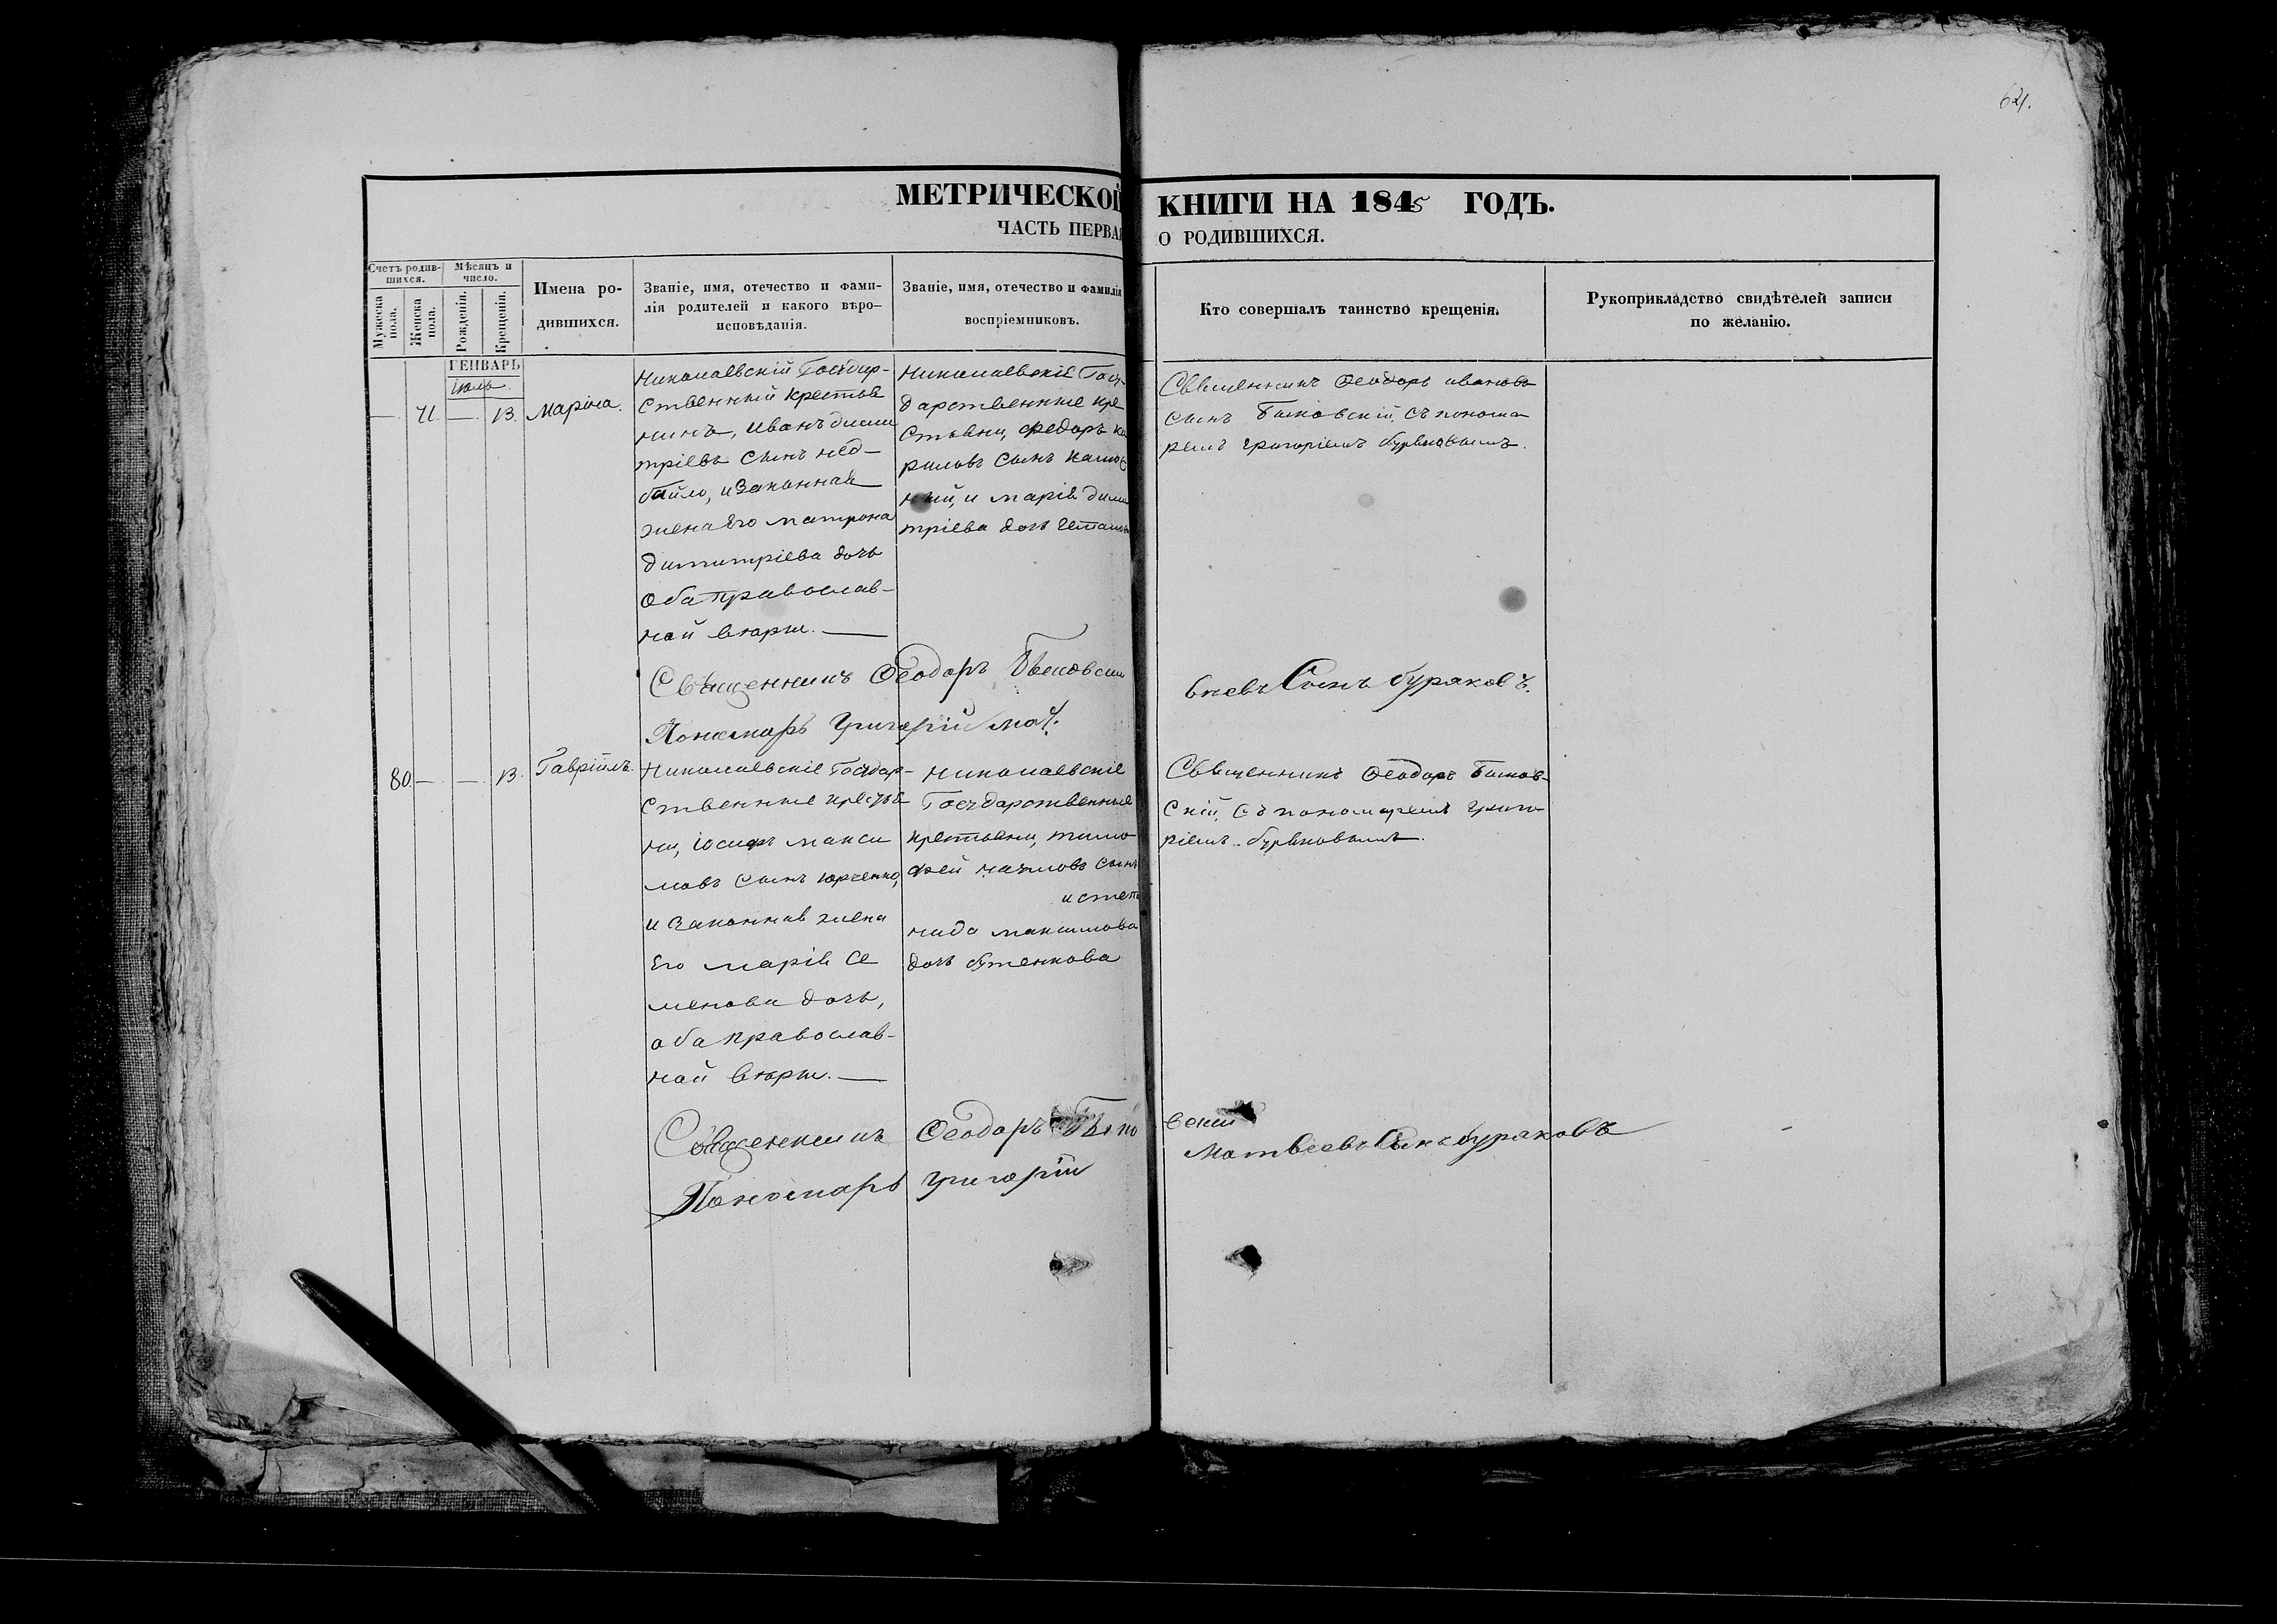 64.
МЕТРИЧЕСКОЙ КНИГИ НА 1845 ГОДЪ.
ЧАСТЬ ПЕРВАЯ О РОДИВШИХСЯ.
Счетъ родив-
шихся.
Мѣсяцъ и
число.
Мужеска
пола.
Женска
пола.
Рожденія.
Крещенія.
Имена ро-
дившихся.
Званіе, имя, отечество и фами-
лія родителей и какого вѣро-
исповѣданія.
Званіе, имя, отечество и фамилія
воспріемниковъ.
Кто совершалъ таинство крещенія.
Рукоприкладство свидѣтелей записи
по желанію.
ГЕНВАРЬ
Июль.
— 71. — 13. Марина.
Николаевскій Государ-
ственный крестья
нинъ, Иванъ дими
тріевъ сынъ нед-
байло, и законная
жена его матрона
димитріева дочь
оба православ-
ной вѣры. —
Николаевскіе Госу-
дарственные кре
стьяни, Федоръ ки
риловъ сынъ
и марія дими
тріева дочь
Священникъ Феодоръ ивановъ
сынъ Быковскій, съ понома
ремъ григоріемъ буряковымъ.
Священникъ Феодоръ Быковскій
Пономарь Григорій мат.
вѣевъ Сынъ буряковъ.
80. — — 13. Гавріилъ.
Николаевскіе Государ-
ственные крестья
ни, Іосифъ макси
мовъ сынъ юрченко,
и законная жена
его марія се
менова дочь,
оба православ-
ной вѣры. —
Николаевскіе
Государственные
крестьяни, тимо
фей наумовъ сынъ
и степа
нида максимова
дочь бутенкова
Священникъ Феодоръ Быков-
скій, съ пономаремъ григо-
ріемъ буряковымъ.
Священникъ Феодоръ Быко
вскій
Пономарь григорій
Матвеевъ Сынъ буряковъ